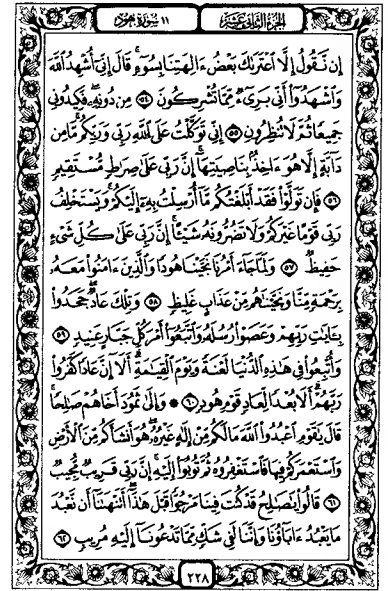 الجزء الثاني عشر ١١ سورة هود
إِن نَّقُولُ إِلَّا ٱعْتَرَىٰكَ بَعْضُ ءَالِهَتِنَا بِسُوٓءٍ ۗ قَالَ إِنِّىٓ أُشْهِدُ ٱللَّهَ
وَٱشْهَدُوٓا۟ أَنِّى بَرِىٓءٌ مِّمَّا تُشْرِكُونَ ٥٤ مِن دُونِهِۦ ۖ فَكِيدُونِى
جَمِيعًا ثُمَّ لَا تُنظِرُونِ ٥٥ إِنِّى تَوَكَّلْتُ عَلَى ٱللَّهِ رَبِّى وَرَبِّكُم ۚ مَّا مِن
دَآبَّةٍ إِلَّا هُوَ ءَاخِذٌۢ بِنَاصِيَتِهَآ ۚ إِنَّ رَبِّى عَلَىٰ صِرَٰطٍ مُّسْتَقِيمٍ
٥٦ فَإِن تَوَلَّوْا۟ فَقَدْ أَبْلَغْتُكُم مَّآ أُرْسِلْتُ بِهِۦٓ إِلَيْكُمْ ۚ وَيَسْتَخْلِفُ
رَبِّى قَوْمًا غَيْرَكُمْ وَلَا تَضُرُّونَهُۥ شَيْـًٔا ۚ إِنَّ رَبِّى عَلَىٰ كُلِّ شَىْءٍ
حَفِيظٌ ٥٧ وَلَمَّا جَآءَ أَمْرُنَا نَجَّيْنَا هُودًا وَٱلَّذِينَ ءَامَنُوا۟ مَعَهُۥ
بِرَحْمَةٍ مِّنَّا وَنَجَّيْنَٰهُم مِّنْ عَذَابٍ غَلِيظٍ ٥٨ وَتِلْكَ عَادٌ ۖ جَحَدُوا۟
بِـَٔايَٰتِ رَبِّهِمْ وَعَصَوْا۟ رُسُلَهُۥ وَٱتَّبَعُوٓا۟ أَمْرَ كُلِّ جَبَّارٍ عَنِيدٍ ٥٩
وَأُتْبِعُوا۟ فِى هَٰذِهِ ٱلدُّنْيَا لَعْنَةً وَيَوْمَ ٱلْقِيَٰمَةِ ۗ أَلَآ إِنَّ عَادًا كَفَرُوا۟
رَبَّهُمْ ۗ أَلَا بُعْدًا لِّعَادٍ قَوْمِ هُودٍ ٦٠ ۞ وَإِلَىٰ ثَمُودَ أَخَاهُمْ صَٰلِحًا ۚ
قَالَ يَٰقَوْمِ ٱعْبُدُوا۟ ٱللَّهَ مَا لَكُم مِّنْ إِلَٰهٍ غَيْرُهُۥ ۖ هُوَ أَنشَأَكُم مِّنَ ٱلْأَرْضِ
وَٱسْتَعْمَرَكُمْ فِيهَا فَٱسْتَغْفِرُوهُ ثُمَّ تُوبُوٓا۟ إِلَيْهِ ۚ إِنَّ رَبِّى قَرِيبٌ مُّجِيبٌ
٦١ قَالُوا۟ يَٰصَٰلِحُ قَدْ كُنتَ فِينَا مَرْجُوًّا قَبْلَ هَٰذَآ ۖ أَتَنْهَىٰنَآ أَن نَّعْبُدَ
مَا يَعْبُدُ ءَابَآؤُنَا وَإِنَّنَا لَفِى شَكٍّ مِّمَّا تَدْعُونَآ إِلَيْهِ مُرِيبٍ ٦٢
٢٢٨